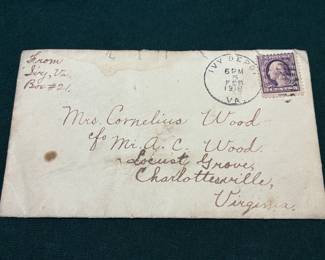 From
Ivy, Va.
Box #21.
IVY DEPOT
6 PM
FEB
1918
VA.
Mrs. Cornelius Wood
c/o Mr. A. C. Wood
Locust Grove,
Charlottesville,
Virginia.